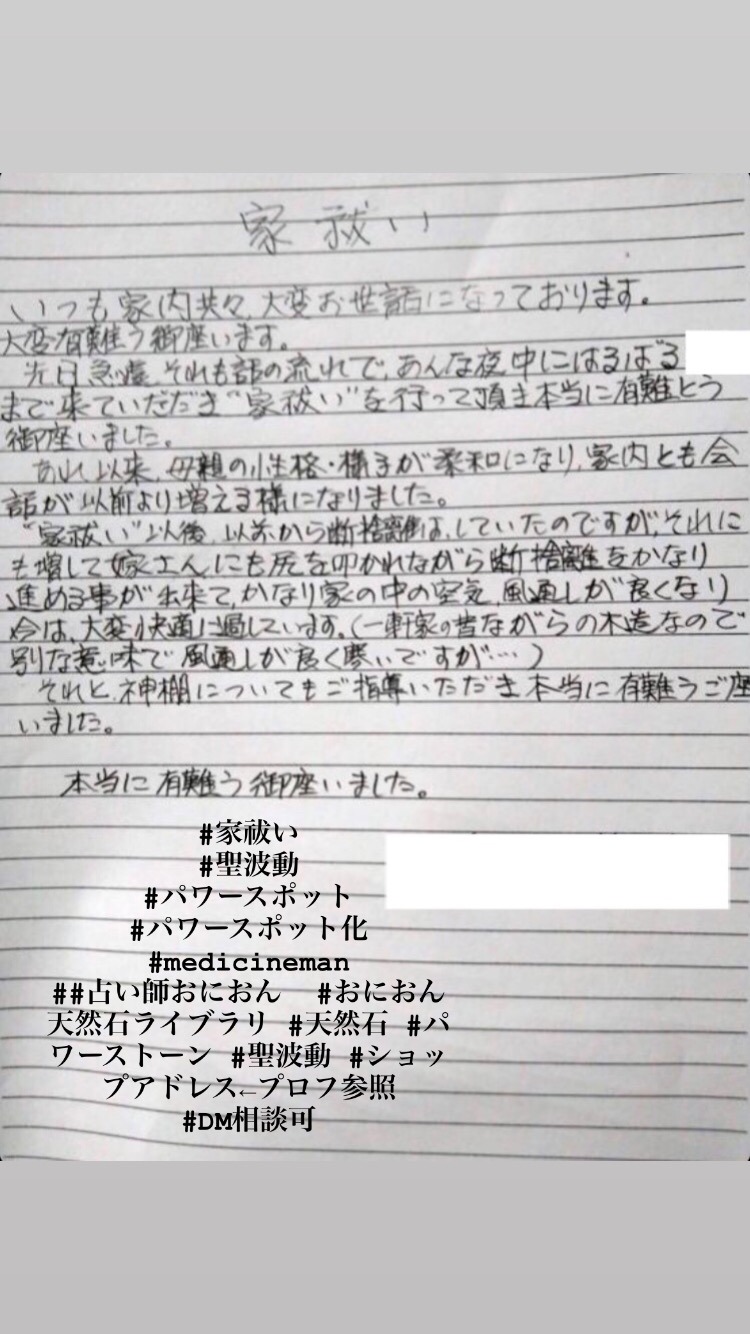 家祓い
いつも家内共々、大変お世話になっております。
大変有難う御座います。
先日急遽、それも話の流れで、あんな夜中にはるばる
まで来ていただき"家祓い"を行って頂き本当に有難とう
御座いました。
あれ以来、母親の性格・様子が柔和になり、家内とも会
話が以前より増える様になりました。
"家祓い"以後、以前から断捨離は、していたのですが、それに
も増して嫁さんにも尻を叩かれながら断捨離をかなり
進める事が出来て、かなり家の中の空気、風通しが良くなり
今は、大変快適に過しています。(一軒家の昔ながらの木造なので
別な意味で風通しが良く寒いですが…)
それと、神棚についてもご指導いただき本当に有難うご座
いました。
本当に有難う御座いました。
#家祓い
#聖波動
#パワースポット
#パワースポット化
#medicineman
##占い師おにおん #おにおん
天然石ライブラリ #天然石 #パ
ワーストーン #聖波動 #ショッ
プアドレス←プロフ参照
#DM相談可